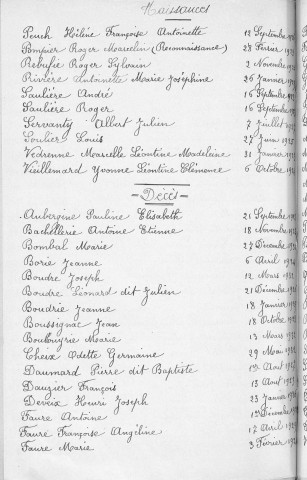 Naissances
Peuch Hélène Françoise Antoinette 12 Septembre
Pompier Roger Marcelin (Reconnaissance) 28 Février
Rebufie Roger Sylvain 2 Novembre
Rivière Antoinette Marie Joséphine 26 Janvier
Saulière André 16 Septembre
Saulière Roger 16 Septembre
Servanty Albert Julien 7 Juillet
Soulier Louis 27 Juin
Vedrenne Marcelle Léontine Madeleine 31 Janvier
Vieillemard Yvonne Léontine Clémence 6 Octobre
Décès
Aubergine Pauline Elisabeth 21 Septembre
Bachellerie Antoine Etienne 18 Novembre
Bombal Marie 27 Décembre
Borie Jeanne 6 Avril
Boudre Joseph 12 Mars
Boudre Léonard dit Julien 21 Décembre
Boudrie Jeanne 18 Janvier
Boussignac Jean 18 Octobre
Marie 13 Mars
Cheix Odette Germaine 29 Mai
Daumard Pierre dit Baptiste 1er Août
Dauzier François 13 Août
Deveix Henri Joseph 23 Janvier
Faure Antoine 1er Décembre
Faure Françoise Angéline 17 Avril
Faure Marie 3 Février